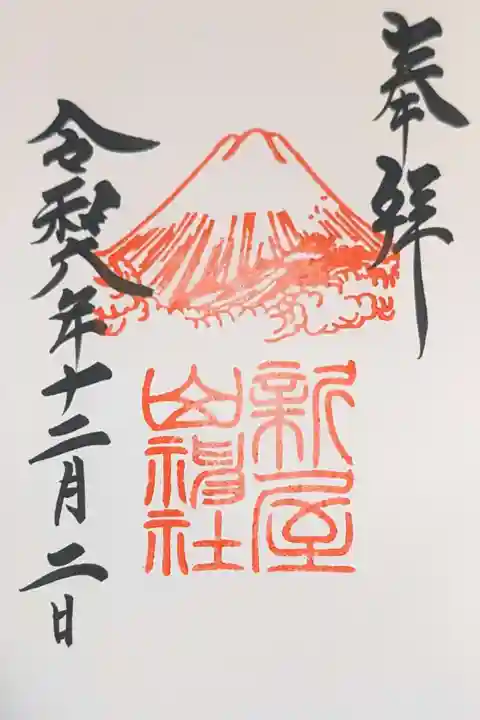 奉拝
新屋
山神社
令和六年十二月二日